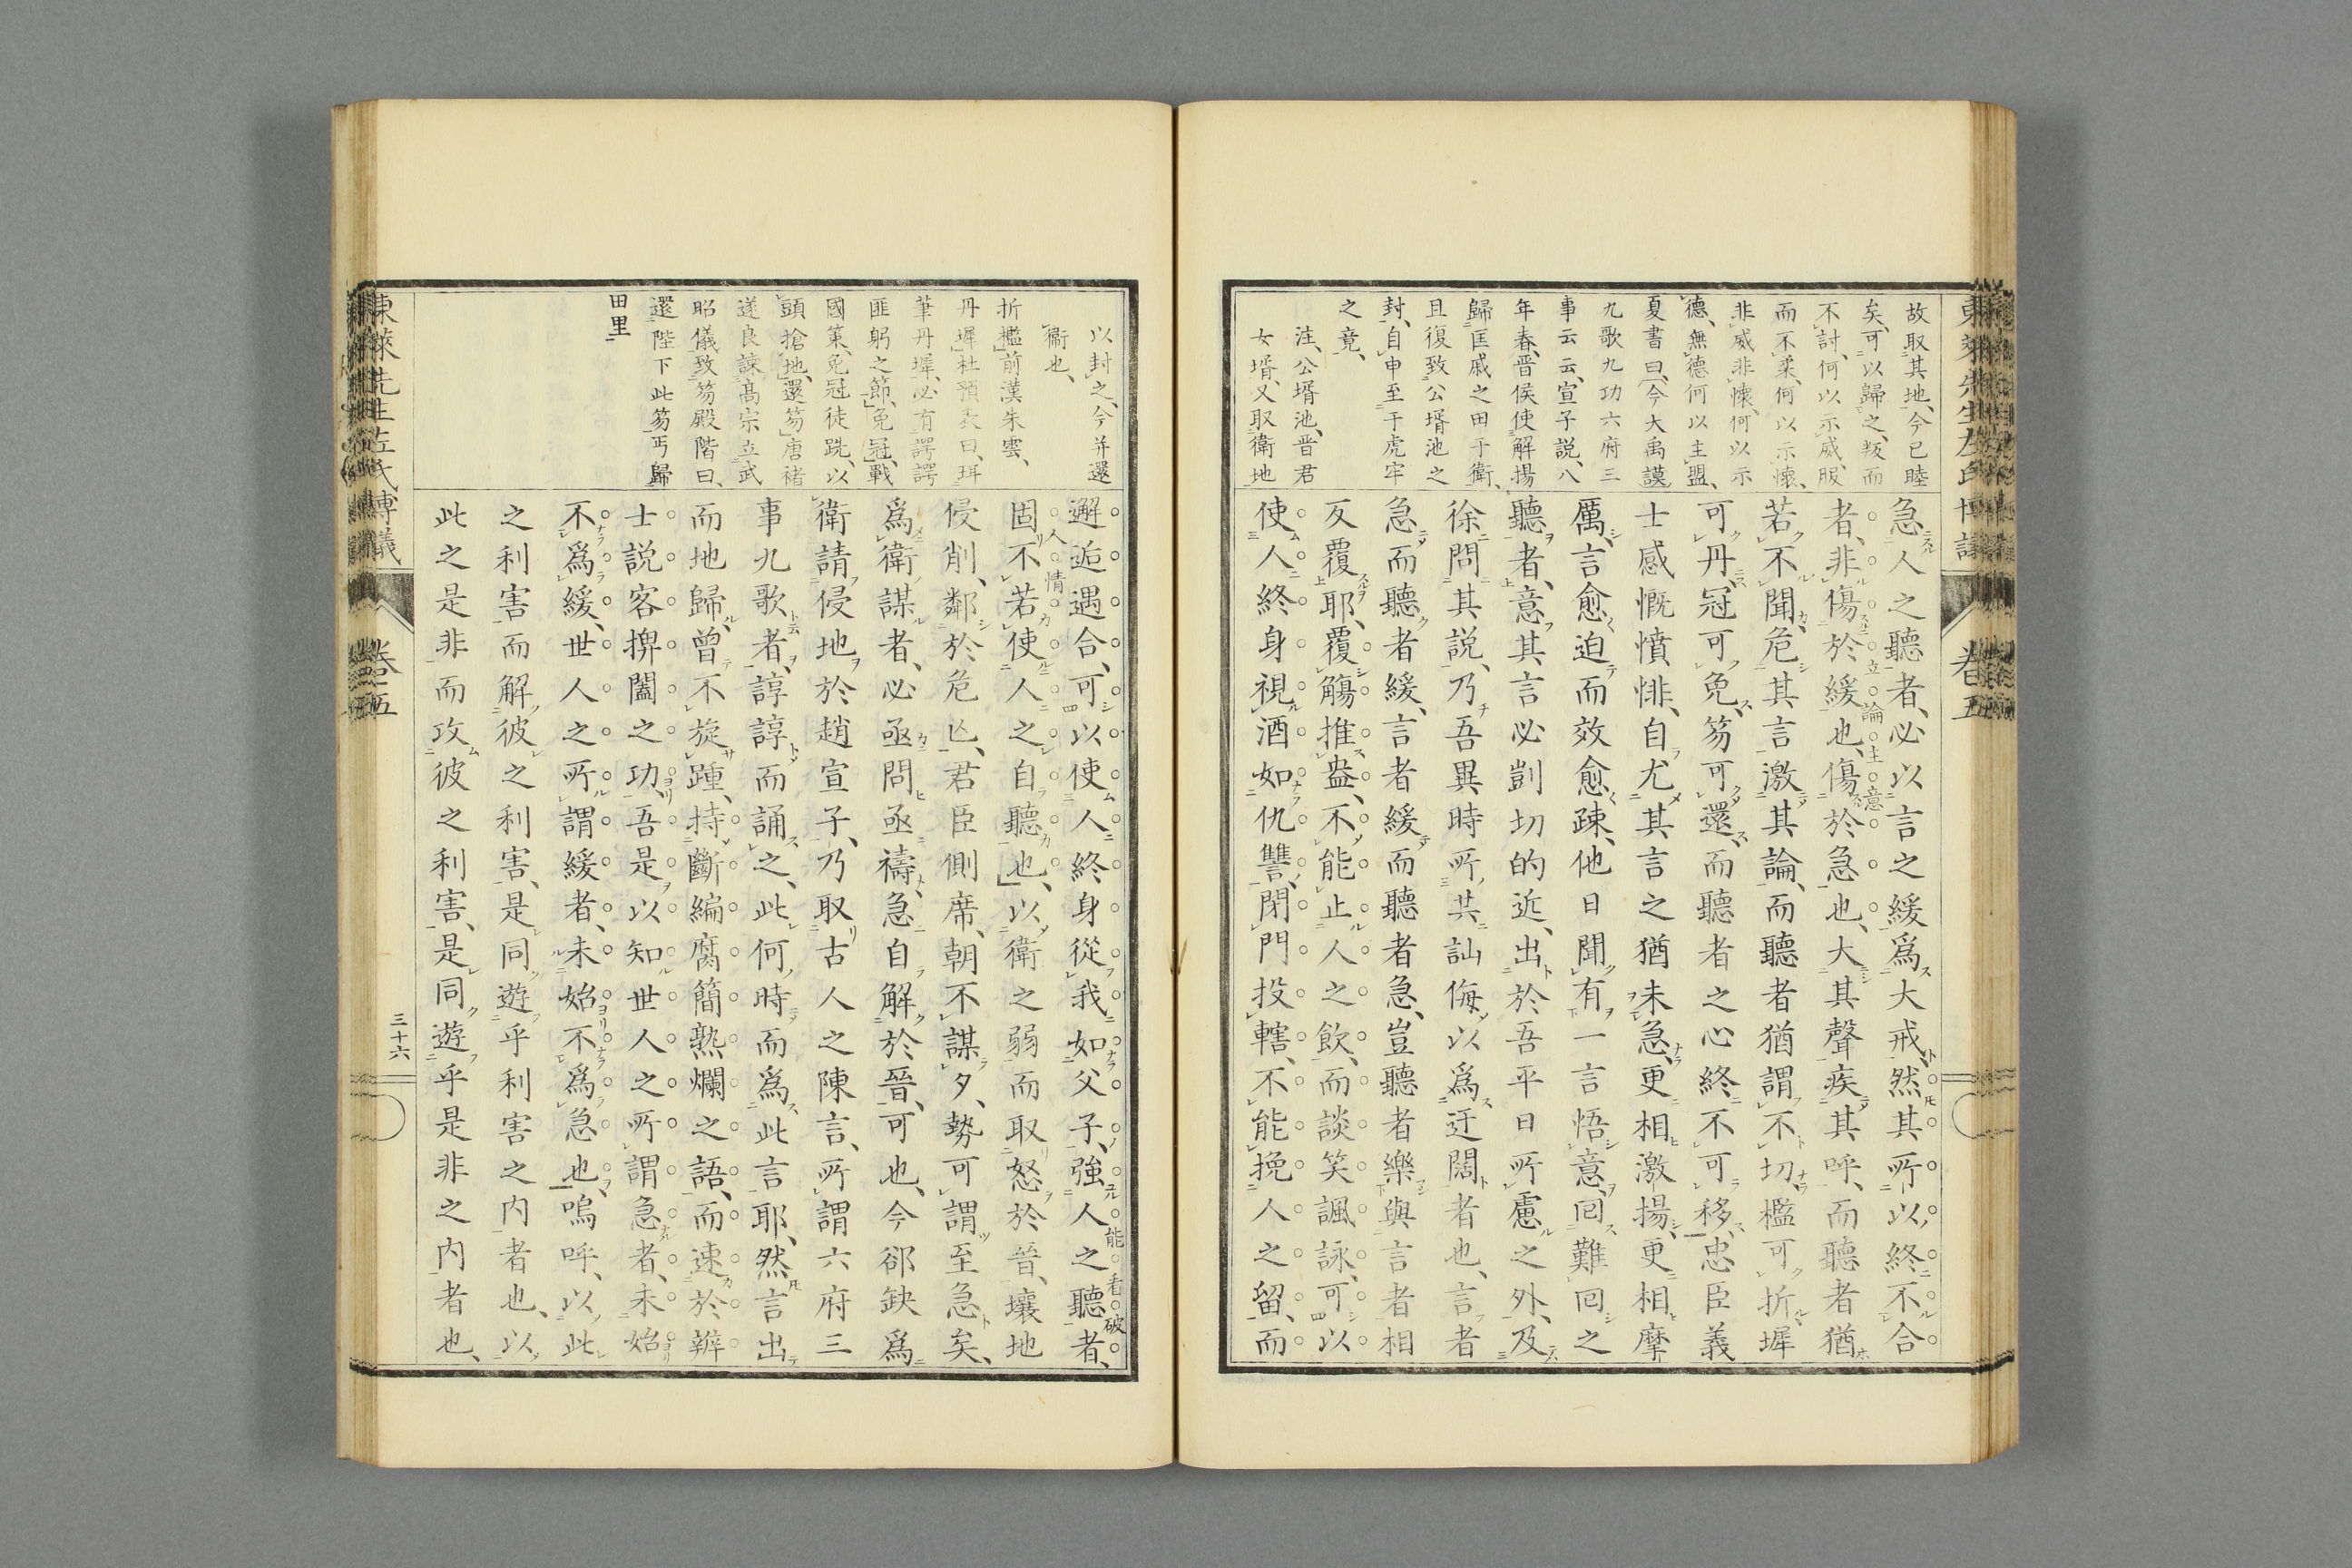 東萊先生左氏博議
卷五
故取其地、今已睦
矣、可以歸之、叛而
不討、何以示威、服
而不柔、何以示懷、
非威非懷、何以示
德、無德何以主盟、
夏書曰、今大禹謨
九歌九功六府三
事云云、宣子説、八
年春、晋侯使解揚
歸匡戚之田于衛、
且復致公壻池之
封、自申至于虎牢
之竟、
注、公壻池、晋君
女壻、又取衛地
急人之聽者、必以言之緩爲大戒、然其所以終不合
者、非傷於緩也、傷於急也、大其聲疾其呼、而聽者猶
若不聞、危其言激其論、而聽者猶謂不切、檻可折墀
可丹、冠可免笏可還、而聽者之心終不可移、忠臣義
士感慨憤悱、自尤其言之猶未急、更相激揚、更相摩
厲、言愈迫而效愈疎、他日聞有一言悟意、回難回之
聽者、意其言必剴切的近、出於吾平日所慮之外、及
徐問其説、乃吾異時所共訕侮以爲迂闊者也、言者
急而聽者緩、言者緩而聽者急、豈聽者樂與言者相
反覆耶、覆觴推盎、不能止人之飲、而談笑諷詠、可以
使人終身視酒如仇讐、閉門投轄、不能挽人之留、而
立論主意
以封之、今并還
衞也、
折檻前漢朱雲、
丹墀杜預表曰、珥
筆丹墀、必有諤諤
匪躬之節、免冠、戰
國策、免冠徒跣、以
頭搶地、還笏唐褚
遂良諫高宗立武
昭儀、致笏殿階曰、
還陛下此笏丐歸
田里
邂逅遇合、可以使人終身從我如父子、強人之聽者、
固不若使人之自聽也、以衛之弱而取怒於晉、壤地
侵削、鄰於危亾、君臣側席、朝不謀夕、勢可謂至急矣、
爲衛謀者、必亟問亟禱、急自解於晉、可也、今郤缺爲
衛請侵地於趙宣子、乃取古人之陳言、所謂六府三
事九歌者、諄諄而誦之、此何時而爲此言耶、然言出
而地歸、曾不旋踵、持斷編腐簡熟爛之語、而速於辯
士説客捭闔之功、吾是以知世人之所謂急者、未始
不爲緩、世人之所謂緩者、未始不爲急也、嗚呼、以此
之利害而解彼之利害、是同遊乎利害之内者也、以
此之是非而攻彼之利害、是同遊乎是非之内者也、
能看破
人情
東萊先生左氏博議
卷五
三十六